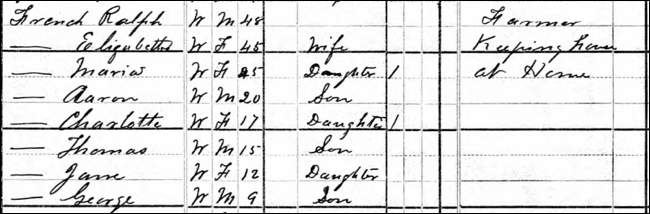 French Ralph W M 48 Farmer
— Elizabeth W F 45 Wife Keeping house
— Maria W F 25 Daughter 1 at Home
— Aaron W M 20 Son
— Charlotte W F 17 Daughter 1
— Thomas W M 15 Son
— Jane W F 12 Daughter
— George W M 9 Son